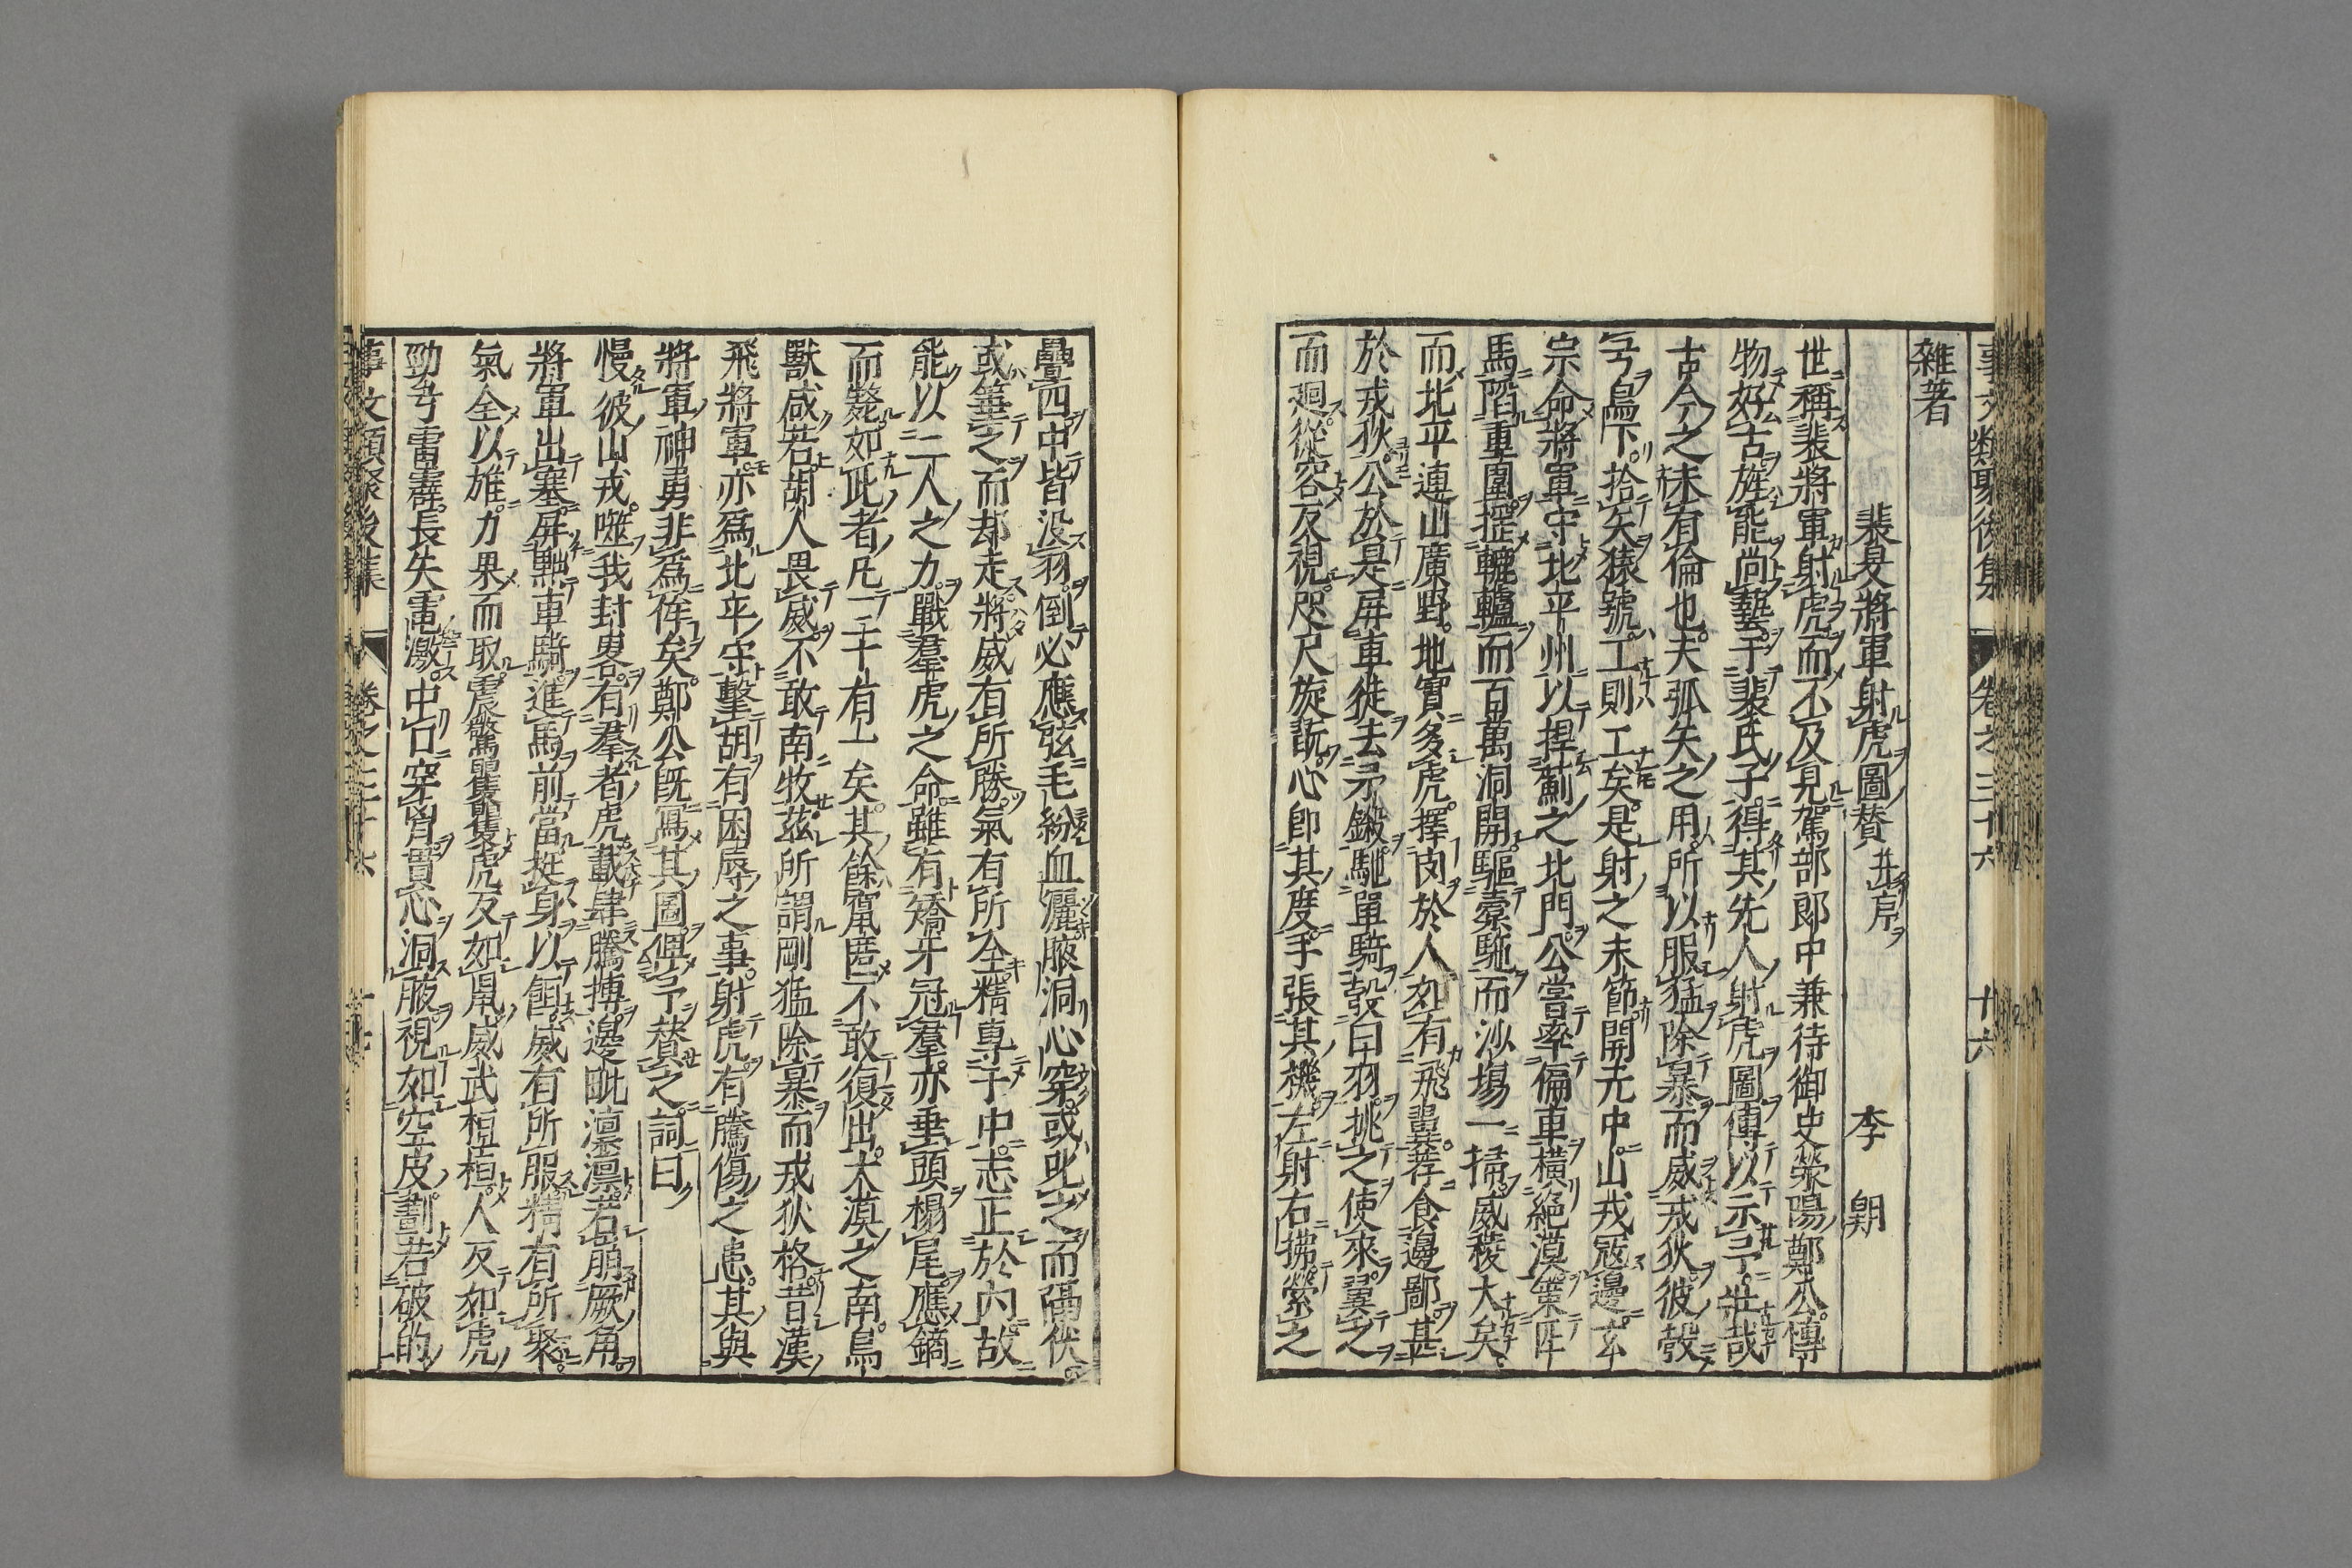 事文類聚後集 卷之三十六 十六
雜著
裴旻將軍射虎圖贊 并序 李翺
世稱裴將軍射虎而不及見駕部郎中兼待御史滎陽鄭公慱
物好古旌能尚藝于裴氏子得其先人射虎圖傳以示予壯哉
古今之未有倫也夫弧矢之用所以服猛除暴而威戎狄彼彀
弓鳥下拾矢猿號工則工矣是射之末節開元中山戎寇邊玄
宗命將軍守北平州以捍薊之北門公嘗率偏車橫絕漠策匹
馬陷重圍摧轆轤而百萬洞開驅橐駞而沙塲一掃威稜大矣
而北平連山廣野地實多虎擇肉於人如有飛翼荐食邊鄙甚
於戎狄公於是屏車徒去矛鎩馳單騎彀白羽挑之使來翼之
而廻從容反視咫尺旋踵心卽其度手張其機左射右拂縈之
疊四中皆沒羽倒必應弦毛紛血灑腋洞心穿或叱之而隔伏
或箠之而却走將威有所勝氣有所全精專于中志正於內故
能以一人之力戰羣虎之命雖有矯牙冠羣亦垂頭榻尾應鏑
而斃如此者凡一千有一矣其餘竄匿不敢復出大漠之南鳥
獸咸若胡人畏威不敢南牧茲所謂剛猛除暴而戎狄格昔漢
飛將軍亦爲北平守擊胡有困辱之事射虎有騰傷之患其與
將軍神勇非爲侔矣鄭公旣寫其圖俾予贊之詞曰
慢彼山戎噬我封畧有羣者虎載肆騰搏邊毗凛凛若崩厥角
將軍出塞屏黜車騎進馬前當挺身以餌威有所服精有所聚
氣全以雄力果而取震驚嬰嬰虎反如鼠威武桓桓人反如虎
勁弓雷霹長矢電激中口穿胷貫心洞腋視如空皮劃若破的
事文類聚後集 卷之三十六